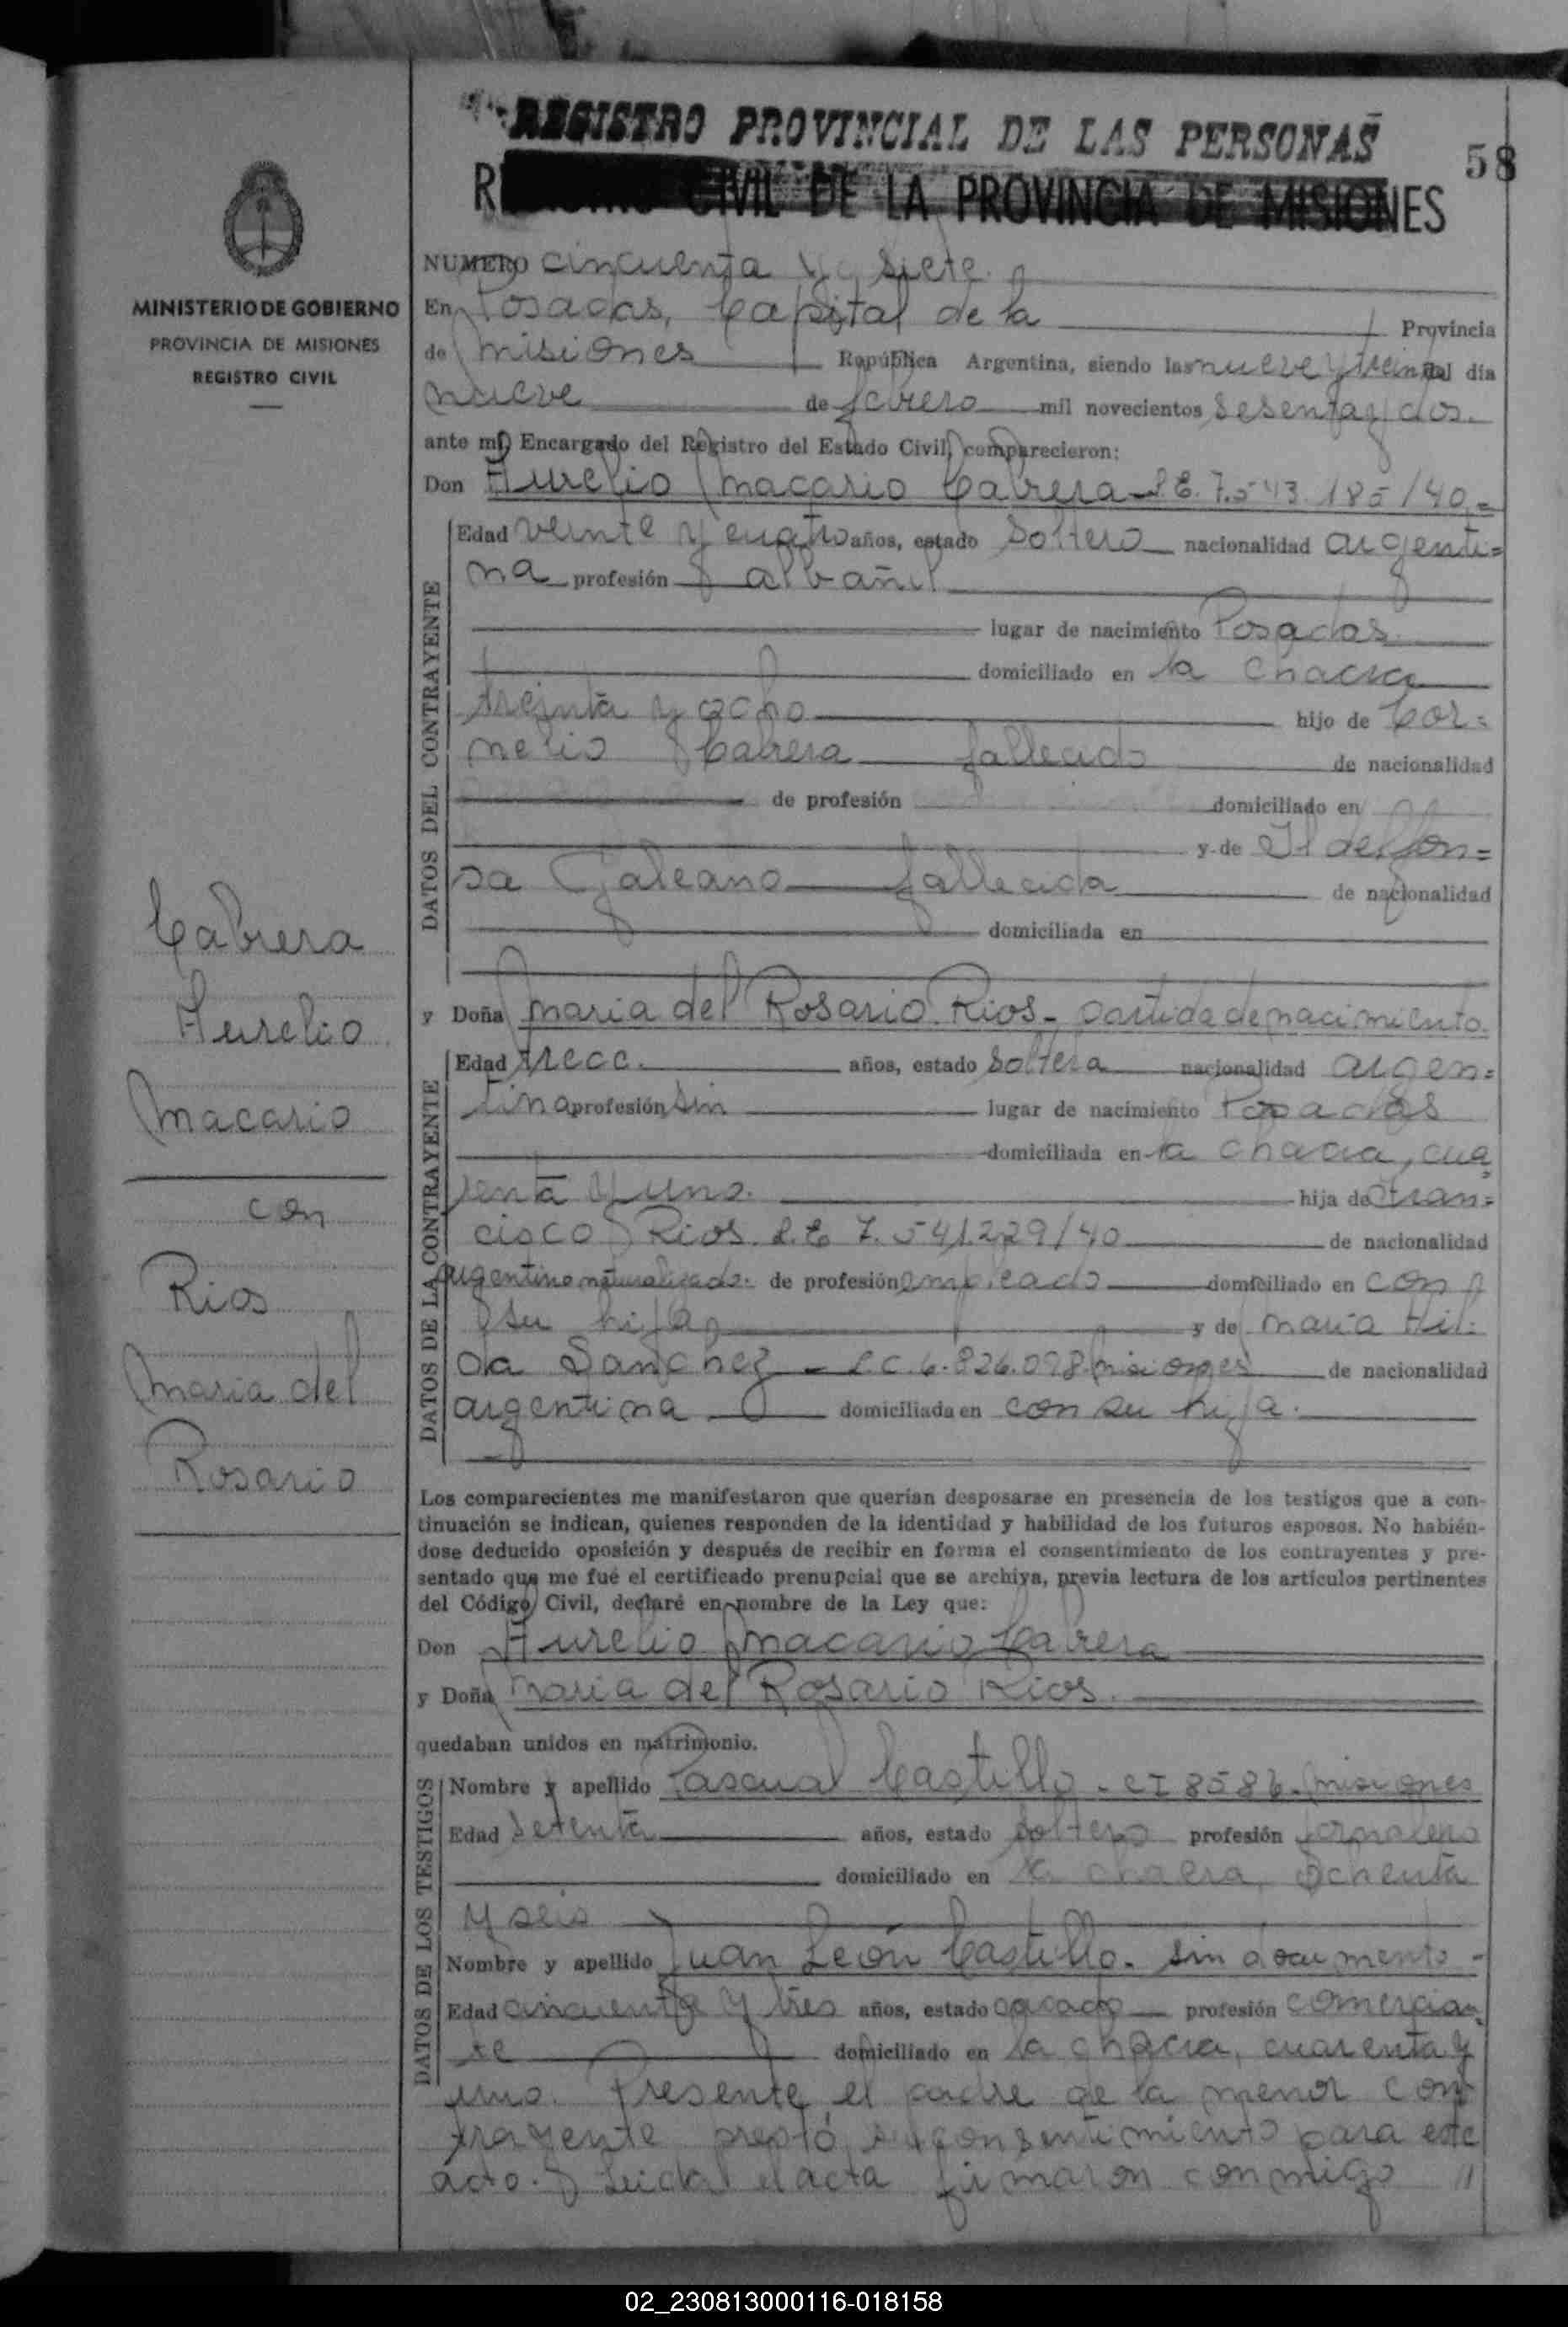 REGISTRO PROVINCIAL DE LAS PERSONAS
58
CIVIL DE LA PROVINCIA DE MISIONES
MINISTERIO DE GOBIERNO
PROVINCIA DE MISIONES
REGISTRO CIVIL
Cabrera
Aurelio
Macario
con
Rios
Maria del
Rosario
NUMERO cincuenta y siete.
En Posadas, Capital de la Provincia
de Misiones República Argentina, siendo las nueve y treinta del día
nueve de febrero mil novecientos sesenta y dos.
ante mí, Encargado del Registro del Estado Civil, comparecieron:
Don Aurelio Macario Cabrera - L.E. 7.543.185/40.=
DATOS DEL CONTRAYENTE
Edad veinte y cuatro años, estado soltero nacionalidad argenti=
na profesión albañil
lugar de nacimiento Posadas.
domiciliado en la chacra
treinta y ocho hijo de Cor=
nelio Cabrera fallecido de nacionalidad
de profesión domiciliado en
y de Ildelfon=
sa Galeano fallecida de nacionalidad
domiciliada en
y Doña Maria del Rosario Rios - partida de nacimiento.
DATOS DE LA CONTRAYENTE
Edad trece. años, estado soltera nacionalidad argen=
tina profesión sin lugar de nacimiento Posadas
domiciliada en la chacra, cua
renta y uno. hija de Fran=
cisco Rios. L.E 7.541.229/40 de nacionalidad
Argentino naturalizado. de profesión empleado domiciliado en con
su hija y de Maria Hil=
da Sanchez - L.C. 6.826.098 Misiones de nacionalidad
argentina domiciliada en con su hija.
Los comparecientes me manifestaron que querían desposarse en presencia de los testigos que a con-
tinuación se indican, quienes responden de la identidad y habilidad de los futuros esposos. No habién-
dose deducido oposición y después de recibir en forma el consentimiento de los contrayentes y pre-
sentado que me fué el certificado prenupcial que se archiva, previa lectura de los artículos pertinentes
del Código Civil, declaré en nombre de la Ley que:
Don Aurelio Macario Cabrera
y Doña Maria del Rosario Rios.
quedaban unidos en matrimonio.
DATOS DE LOS TESTIGOS
Nombre y apellido Pascual Castillo - CI 8586 - Misiones
Edad setenta años, estado soltero profesión jornalero
domiciliado en la chacra, ochenta
y seis
Nombre y apellido Juan León Castillo. sin documento -
Edad cincuenta y tres años, estado casado profesión comercian
te domiciliado en la chacra, cuarenta y
uno. Presente, el padre de la menor con
trayente prestó su consentimiento para este
acto. Leída el acta firmaron conmigo //
02_230813000116-018158